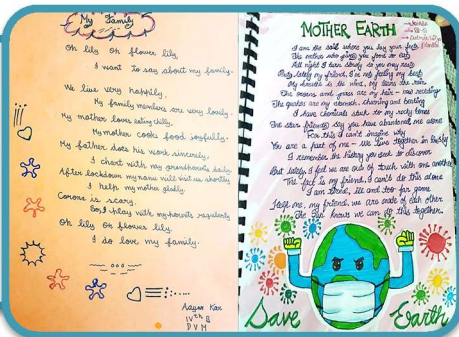 My Family
Oh lily Oh flower lily,
I want to say about my family.
We live very happily,
My family members are very lovely.
My mother loves eating chilly,
My mother cooks food joyfully.
My father does his work sincerely,
I chart with my grandparents daily.
After lockdown my nanu will visit us shortly
I help my mother gladly
Corona is scary.
So, I play with my parents regularly
Oh lily Oh flower lily,
I do love my family.
Aayan Kar
IVth B
DVM
MOTHER EARTH
I am the soil where you lay your feet
The mother who gives you food to eat
All night I turn slowly so you may
But, lately my friend, I'm not feeling my best
My breath is the wind, my tears are rain
The oceans and grass are my hair -
The quakes are my stomach, churning and
I have chemicals stuck to my
One star friends say you have abandoned me alone
For this I can't imagine why
You are a part of me - We live together in
I remember the history you seek to discover
But lately I feel we are out of truth with one another
The fact is my friend, I can't do this alone
I am tired, ill and too far gone
Help me, my friend, we are made of each other
The sun knows we can do this together.
Save Earth